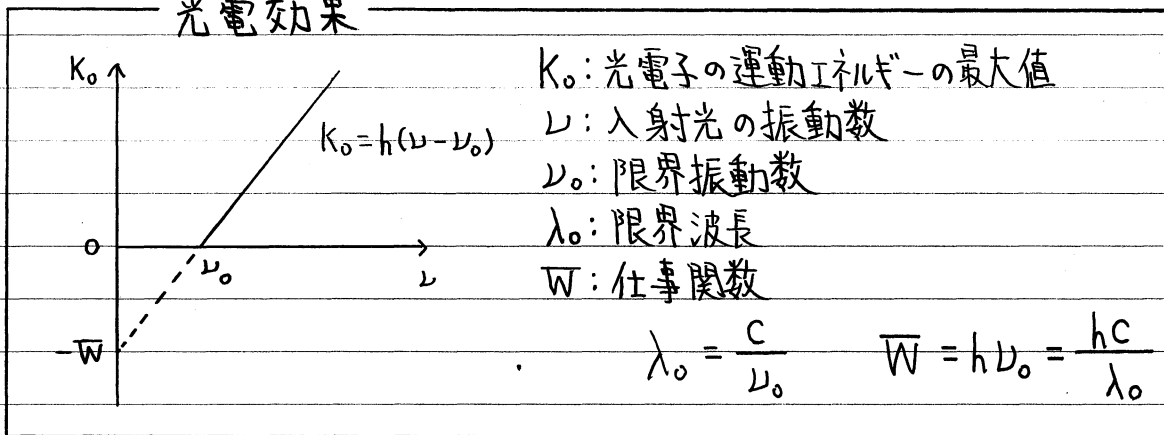 光電効果
K₀
K₀=h(ν-ν₀)
0
ν₀
ν
-W
K₀:光電子の運動エネルギーの最大値
ν:入射光の振動数
ν₀:限界振動数
λ₀:限界波長
W:仕事関数
λ₀ = c/ν₀ W = hν₀ = hc/λ₀